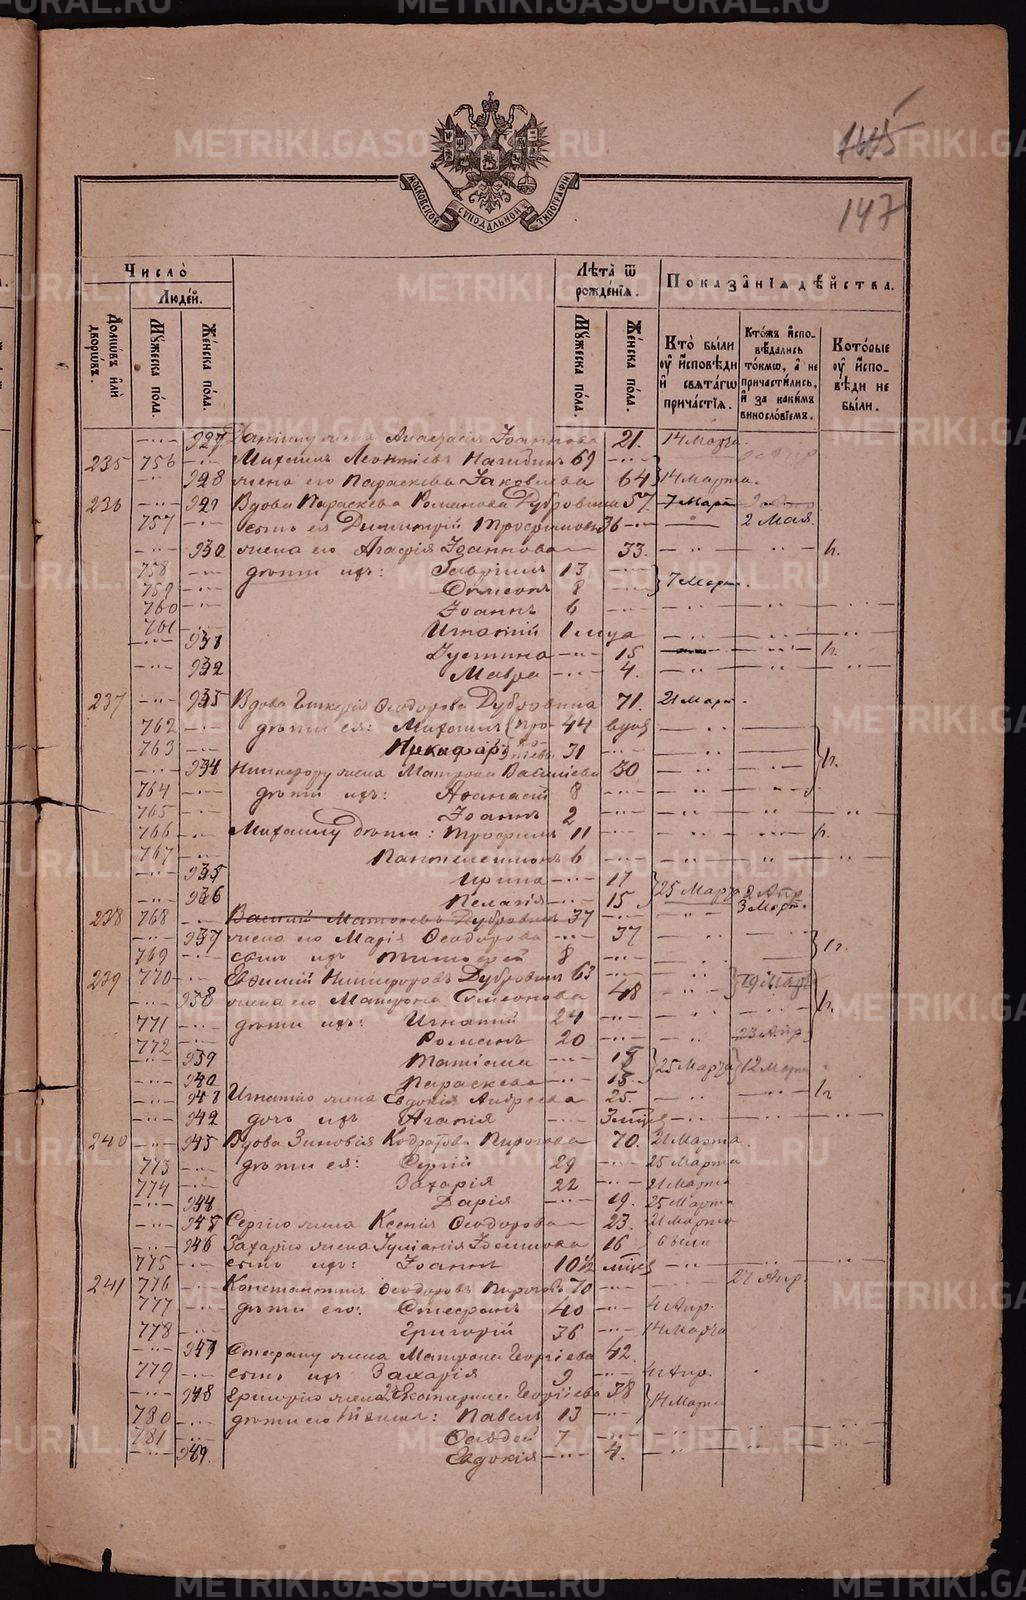 145
147
МОСКОВСКОЙ СѴНОДАЛЬНОЙ ТИПОГРАФІИ
Число
Людей.
Домѡвъ или дворѡвъ.
Мужеска пола.
Женска пола.
Лѣта ѿ рожденія.
Мужеска пола.
Женска пола.
Показанія дѣйства.
Кто были оу исповѣди и святагѡ причастія.
Ктожъ исповѣдались токмѡ, а не причастились, и за какимъ винословіемъ.
Которые оу исповѣди не были.
927 жена Анастасія Іоаннова 21. 14 Марта.
235 756 Михаилъ Леонтіевъ 69
928 жена его Параскева Іаковлева 64 14 Марта.
236 929 Вдова Параскева Романова Дубровина 57. 7 Март
757 сынъ ея Димитрій Трофимовъ 36 2 Мая.
930 жена его Агафія Іоаннова 33. н.
758 дѣти ихъ: Гавріилъ 13
759 Симеонъ 8 7 Март.
760 Іоаннъ 6
761 Игнатій 1 м-ца
931 Іустина 15 н.
932 Мавра 4.
237 933 Вдова Гликерія Ѳеодорова Дубровина 71. 21 Март.
762 дѣти ея: Михаилъ 44 вдов
763 Никифоръ 31 н.
934 Никифору жена Матрона Василіева 30
764 дѣти ихъ: Аѳанасій 8
765 Іоаннъ 2
766 Михаилу дѣти: Трофимъ 11 н.
767 Пантелеимонъ 6
935 Ирина 17
936 Пелагія 15 25 Марта 2 Апр
238 768 Василій Матѳеевъ Дубровинъ 37 3 Март.
937 жена его Марія Ѳеодорова 37 н.
769 сынъ ихъ Тимоѳей 8
239 770 Евѳимій Никифоровъ Дубровинъ 63
938 жена его Матрона Симеонова 48 н.
771 дѣти ихъ: Игнатій 24
772 Романъ 20 23 Апр
939 Татіана 18
940 Параскева 15 25 Марта 12 Март
941 Игнатію жена Евдокія Андреева 25. н
942 дочь ихъ Агапія
240 943 Вдова Зиновія Кодратова Пирогова 70. 21 Марта
773 дѣти ея: Сергій 29 25 Марта
774 Захарія 22 21 Марта
944 Дарія 19. 25 Марта
945 Сергію жена Ксенія Ѳеодорова 23. 21 Марта
946 Захарію жена Іуліанія 16
775 сынъ ихъ: Іоаннъ
241 776 Константинъ Ѳеодоровъ Пироговъ 70 27 Апр.
777 дѣти его: Стефанъ 40 4 Апр.
778 Григорій 36 14 Марта
947 Стефану жена Матрона Георгіева 42.
779 сынъ ихъ Захарія 9 4 Апр.
948 Григорію жена Екатерина Георгіева 38 14 Март
780 дѣти его: Павелъ 13
781 Ѳаддей 7
949. Евдокія 4.
METRIKI.GASO-URAL.RU